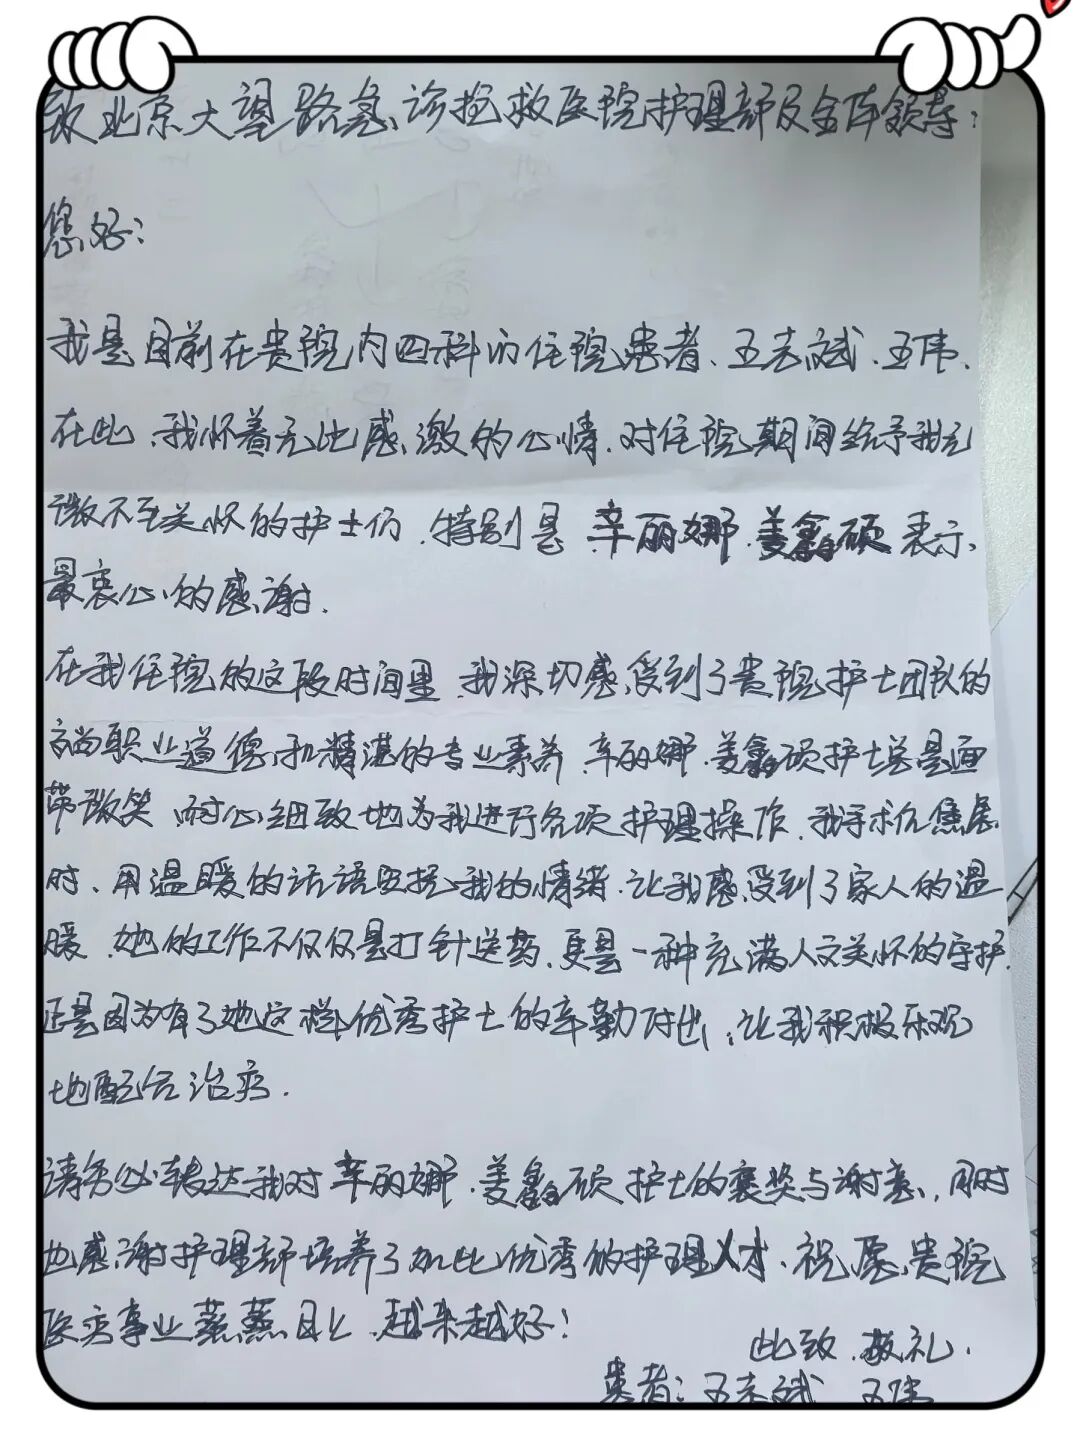 致北京大望路急诊抢救医院护理部及全体领导：
您好：
我是目前在贵院内四科的住院患者、王志斌、王伟、
在此、我怀着无比感激的心情、对住院期间给予我无
微不至关怀的护士们、特别是 辛丽娜、姜鑫硕 表示、
最衷心的感谢.
在我住院的这段时间里、我深切感受到了贵院护士团队的
高尚职业道德和精湛的专业素养、辛丽娜、姜鑫硕护士总是面
带微笑、耐心细致地为我进行各项护理操作、我手术前焦虑
时、用温暖的话语安抚我的情绪、让我感受到了家人的温
暖、她的工作不仅仅是打针送药、更是一种充满人文关怀的守护.
正是因为有了她这样优秀护士的辛勤付出、让我积极乐观
地配合治疗.
请务必转达我对辛丽娜、姜鑫硕护士的褒奖与谢意、同时
也感谢护理部培养了如此优秀的护理人才、祝愿贵院
医疗事业蒸蒸日上、越来越好！
此致、敬礼、
患者：王志斌 王伟